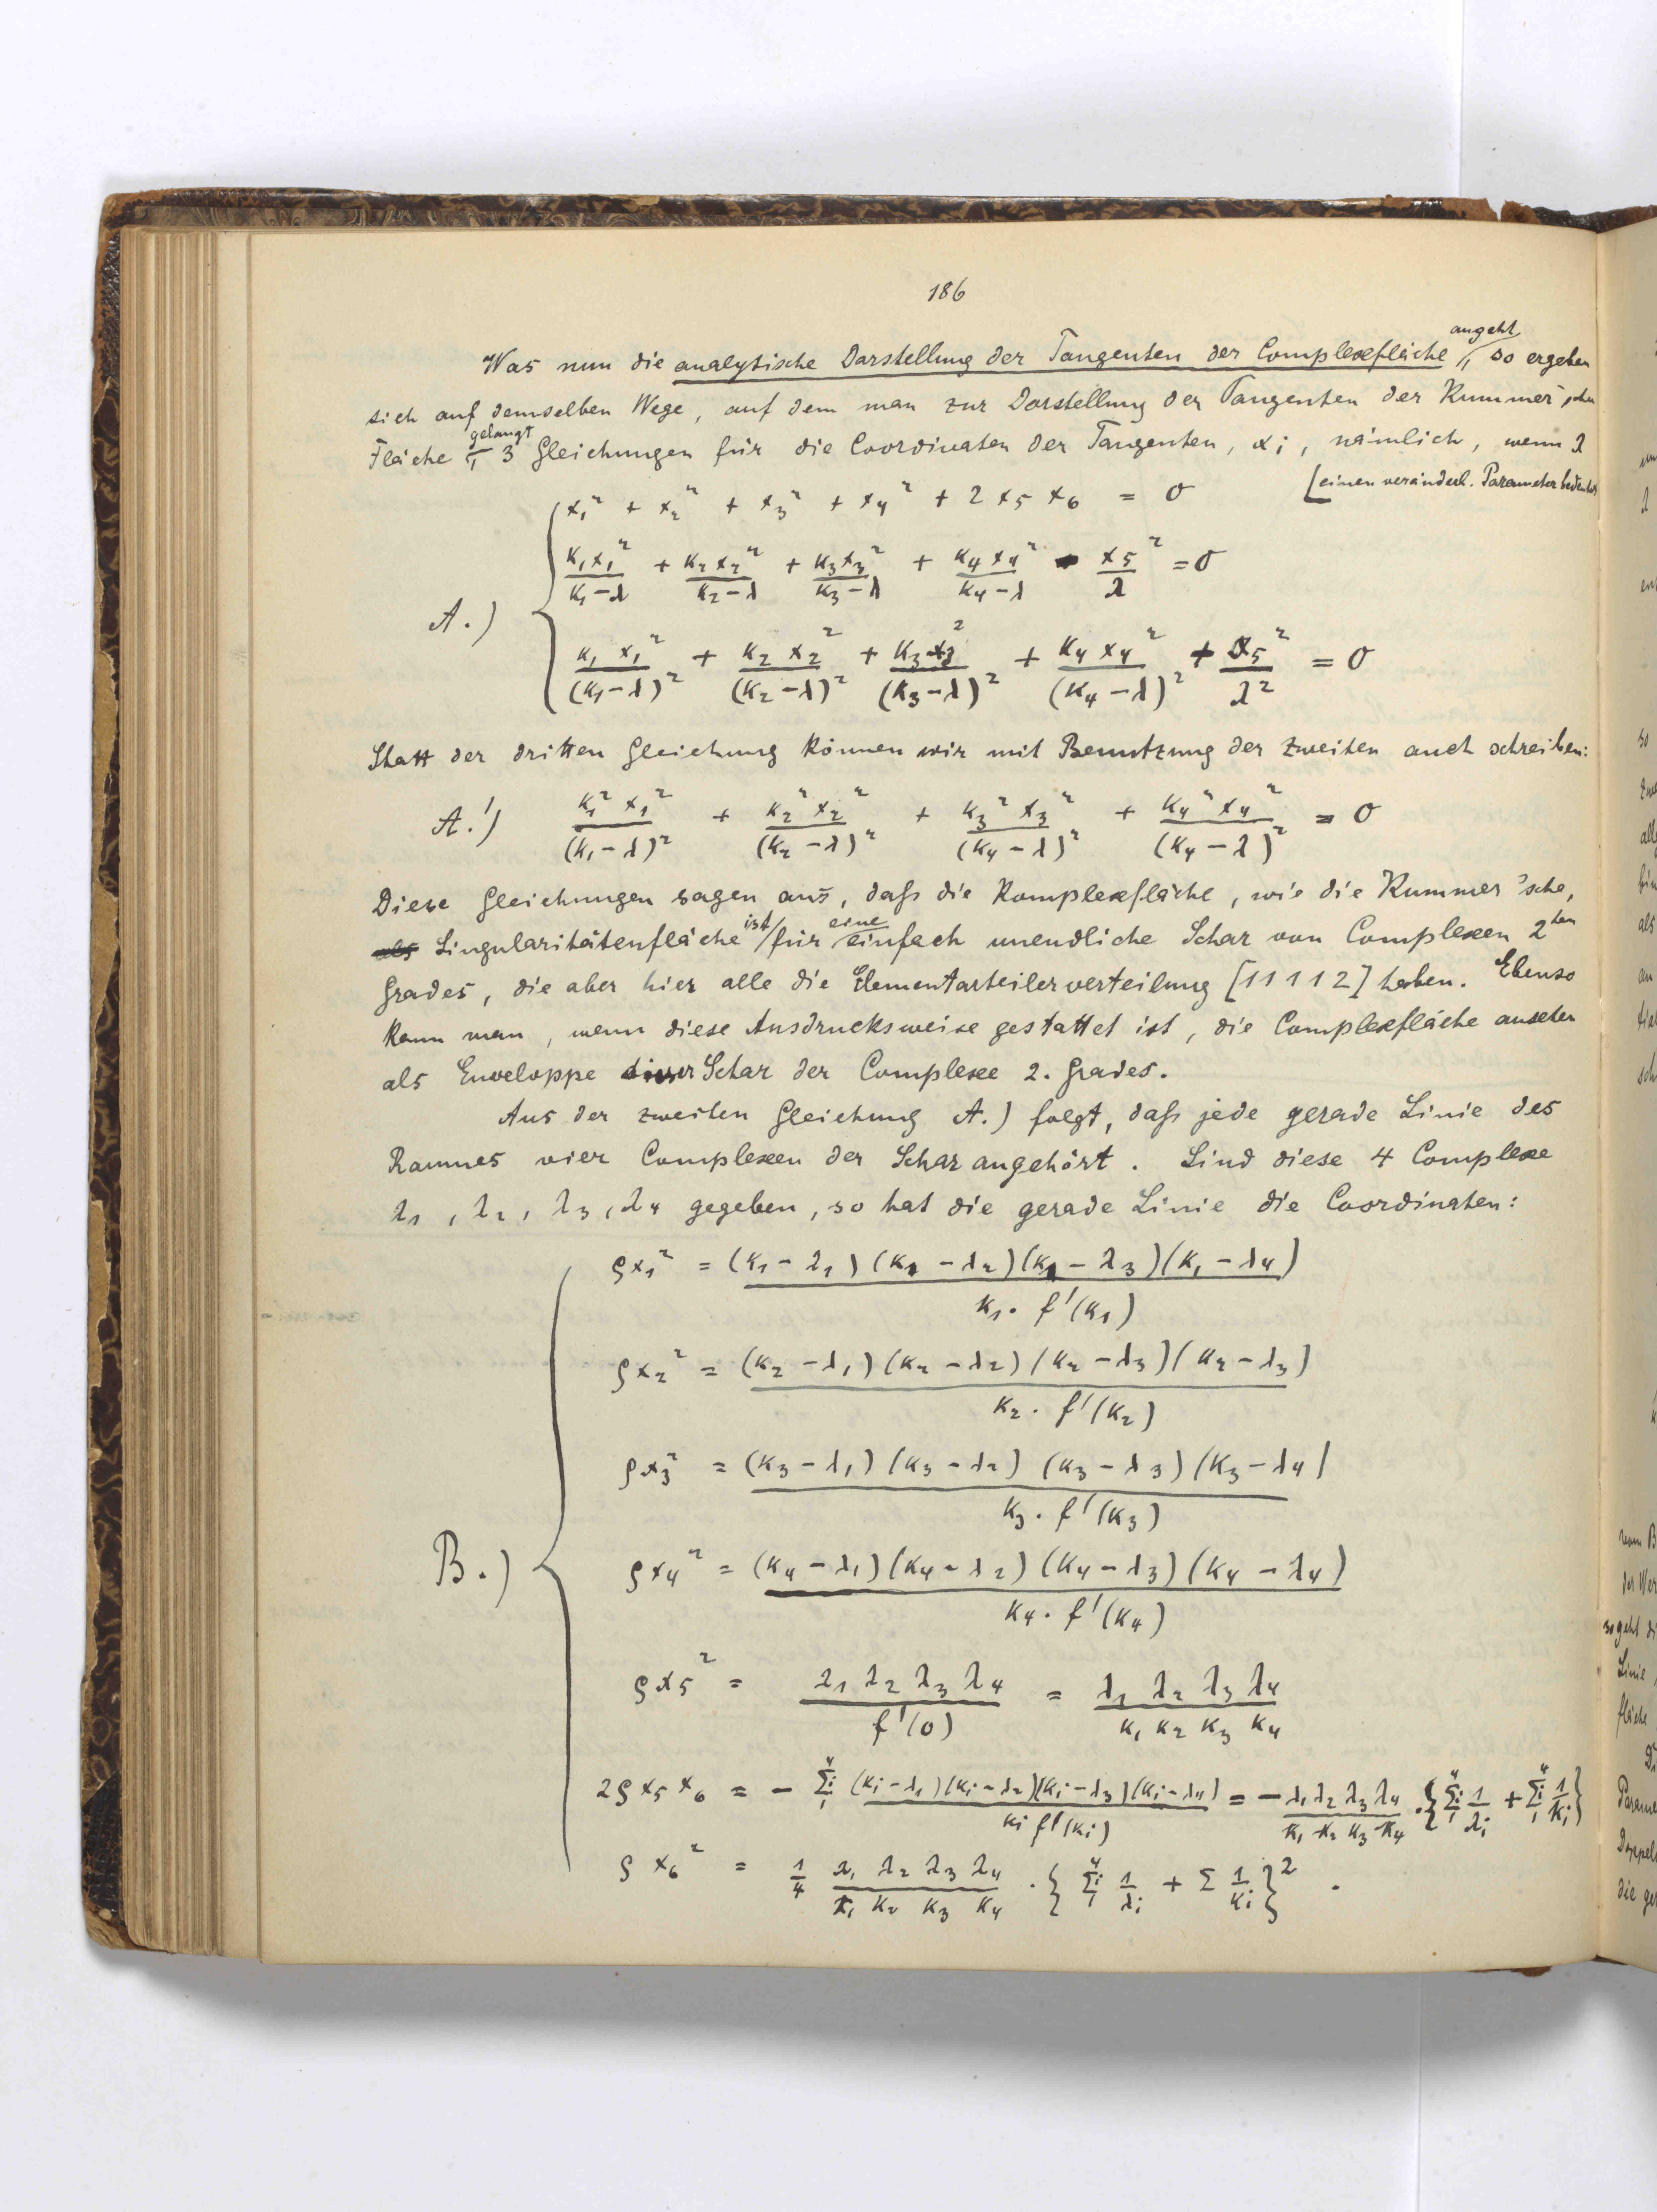 186
Was nun die analytische Darstellung der Tangenten der Complexfläche angeht, so ergeben
sich auf demselben Wege, auf dem man zur Darstellung der Tangenten der Kummer'schen
Fläche gelangt 3 Gleichungen für die Coordinaten der Tangenten, x_i, nämlich, wenn λ
[einen veränderl. Parameter bedeutet
x_1^2 + x_2^2 + x_3^2 + x_4^2 + 2 x_5 x_6 = 0
\frac{k_1 x_1^2}{k_1-λ} + \frac{k_2 x_2^2}{k_2-λ} + \frac{k_3 x_3^2}{k_3-λ} + \frac{k_4 x_4^2}{k_4-λ} - \frac{x_5^2}{λ} = 0
A.)
\frac{k_1 x_1^2}{(k_1-λ)^2} + \frac{k_2 x_2^2}{(k_2-λ)^2} + \frac{k_3 x_3^2}{(k_3-λ)^2} + \frac{k_4 x_4^2}{(k_4-λ)^2} + \frac{x_5^2}{λ^2} = 0
Statt der dritten Gleichung können wir mit Benutzung der zweiten auch schreiben:
A.') \frac{k_1^2 x_1^2}{(k_1-λ)^2} + \frac{k_2^2 x_2^2}{(k_2-λ)^2} + \frac{k_3^2 x_3^2}{(k_4-λ)^2} + \frac{k_4^2 x_4^2}{(k_4-λ)^2} = 0
Diese Gleichungen sagen aus, daß die Komplexfläche, wie die Kummer'sche,
als Singularitätenfläche ist für eine einfach unendliche Schar von Complexen 2ten
Grades, die aber hier alle die Elementarteilerverteilung [11112] haben. Ebenso
kann man, wenn diese Ausdrucksweise gestattet ist, die Complexfläche ansehen
als Enveloppe dieser Schar der Complexe 2. Grades.
Aus der zweiten Gleichung A.) folgt, daß jede gerade Linie des
Raumes vier Complexen der Schar angehört. Sind diese 4 Complexe
λ_1, λ_2, λ_3, λ_4 gegeben, so hat die gerade Linie die Coordinaten:
ρx_1^2 = \frac{(k_1-λ_1)(k_1-λ_2)(k_1-λ_3)(k_1-λ_4)}{k_1·f'(k_1)}
ρx_2^2 = \frac{(k_2-λ_1)(k_2-λ_2)(k_2-λ_3)(k_2-λ_3)}{k_2·f'(k_2)}
ρx_3^2 = \frac{(k_3-λ_1)(k_3-λ_2)(k_3-λ_3)(k_3-λ_4)}{k_3·f'(k_3)}
B.) ρx_4^2 = \frac{(k_4-λ_1)(k_4-λ_2)(k_4-λ_3)(k_4-λ_4)}{k_4·f'(k_4)}
ρx_5^2 = \frac{λ_1 λ_2 λ_3 λ_4}{f'(0)} = \frac{λ_1 λ_2 λ_3 λ_4}{k_1 k_2 k_3 k_4}
2ρx_5 x_6 = - \sum_1^4{}_i \frac{(k_i-λ_1)(k_i-λ_2)(k_i-λ_3)(k_i-λ_4)}{k_i f'(k_i)} = - \frac{λ_1 λ_2 λ_3 λ_4}{k_1 k_2 k_3 k_4} · {\sum_1^4{}_i \frac{1}{λ_i} + \sum_1^4{}_i \frac{1}{k_i}}
ρx_6^2 = \frac{1}{4} \frac{λ_1 λ_2 λ_3 λ_4}{k_1 k_2 k_3 k_4} · {\sum_1^4{}_i \frac{1}{λ_i} + Σ \frac{1}{k_i}}^2 .